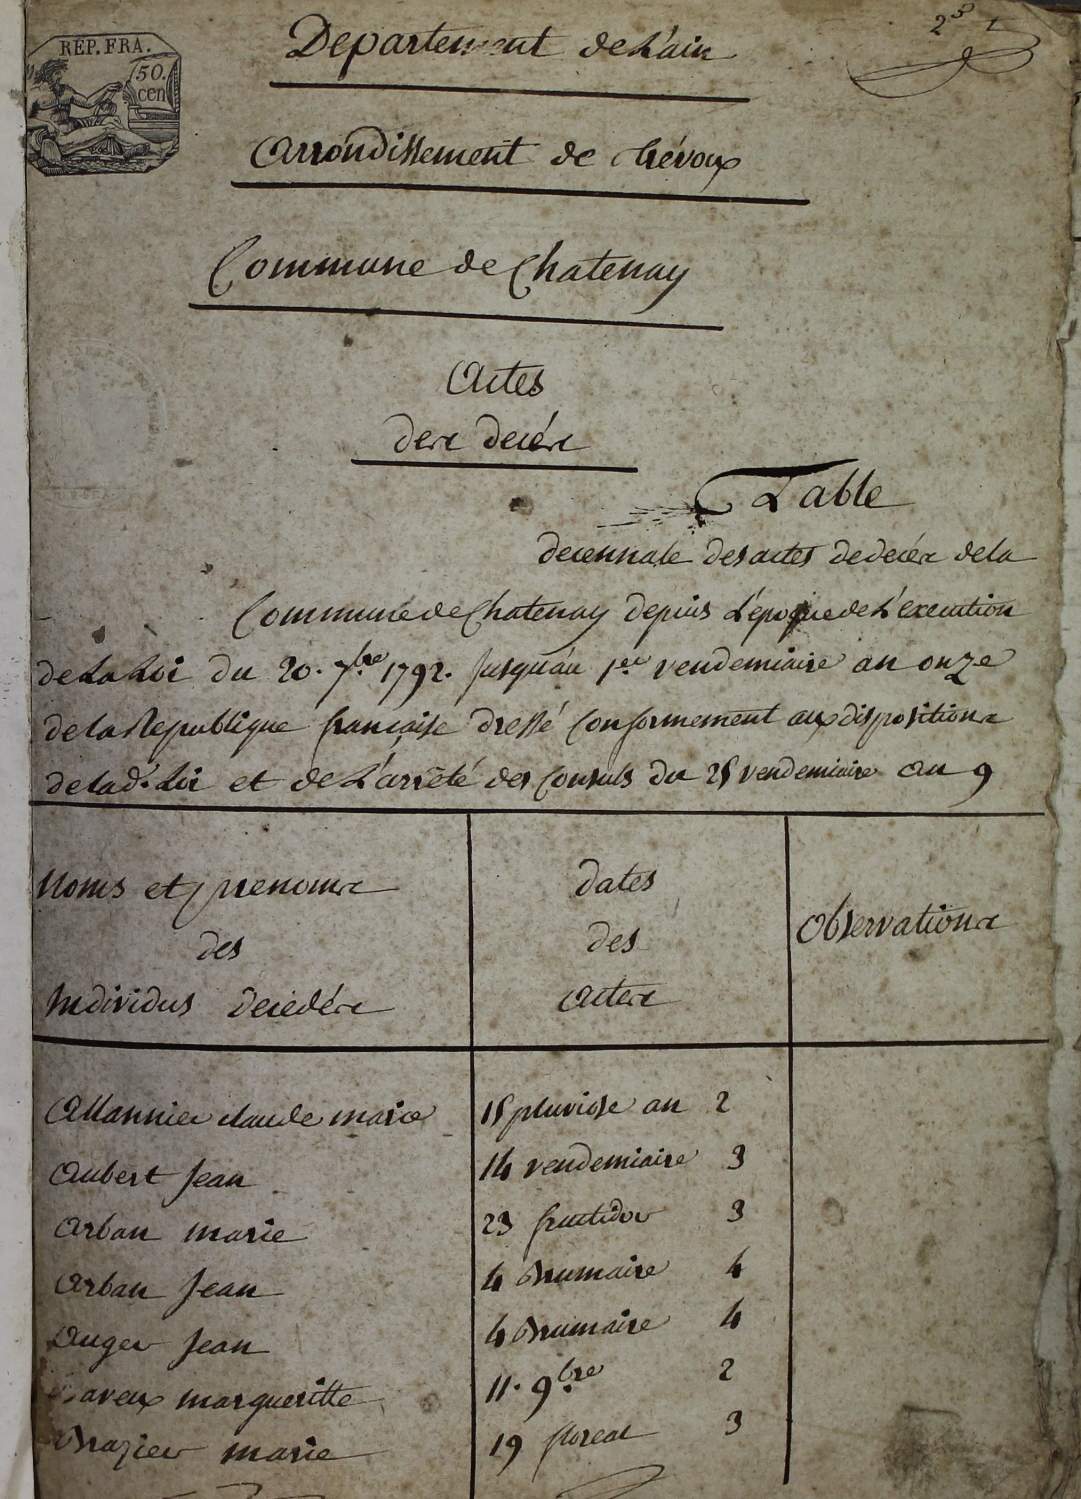 REP. FRA.
50.
cen
Departement de L'ain
Arrondissement de trévoux
Commune de Chatenay
Actes
des decés
Table
decennale des actes de decés de la
Commune de Chatenay depuis L'époque de L'execution
de La Loi du 20. 7bre 1792. Jusqu'au 1er vendemiaire an onze
de la Republique francaise dressé Conformement aux dispositions
de lad. Loi et de L'arrêté des Consuls du 25 vendemiaire an 9
Noms et prenoms
des
Individus decedés
dates
des
actes
Observations
Allannier claude marie 15 pluviose an 2
Aubert Jean 14 vendemiaire 3
Arban marie 23 fructidor 3
Arban Jean 4 Brumaire 4
Auger Jean 4 Brumaire 4
margueritte 11. 9bre 2
Brazier marie 19 floreal 3